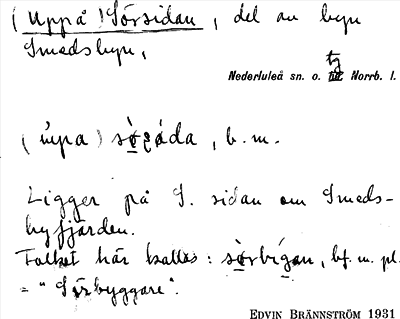 (Uppå) Sörsidan, del av byn
Smedsbyn,
tg
Nederluleå sn. o. Norrb. l.
(ùpa) , b.m.
Ligger på S. sidan om Smeds-
byfjärden.
Folket här kallas: , bf. m. pl.
= "Sörbyggare".
EDVIN BRÄNNSTRÖM 1931